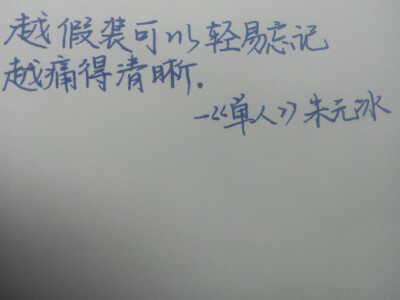 越假装可以轻易忘记
越痛得清晰.
—《单人》朱元冰